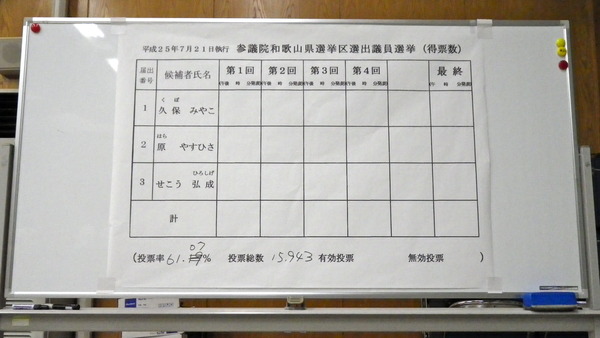 平成25年7月21日執行 参議院和歌山県選挙区選出議員選挙(得票数)
届出番号 候補者氏名 第1回 第2回 第3回 第4回 最終
(午後 時 分発表) (午後 時 分発表) (午後 時 分発表) (午後 時 分発表) (午後 時 分発表)
くぼ
1 久保 みやこ
はら
2 原 やすひさ
ひろしげ
3 せこう 弘成
計
07
(投票率 61.19% 投票総数 15.943 有効投票 無効投票 )